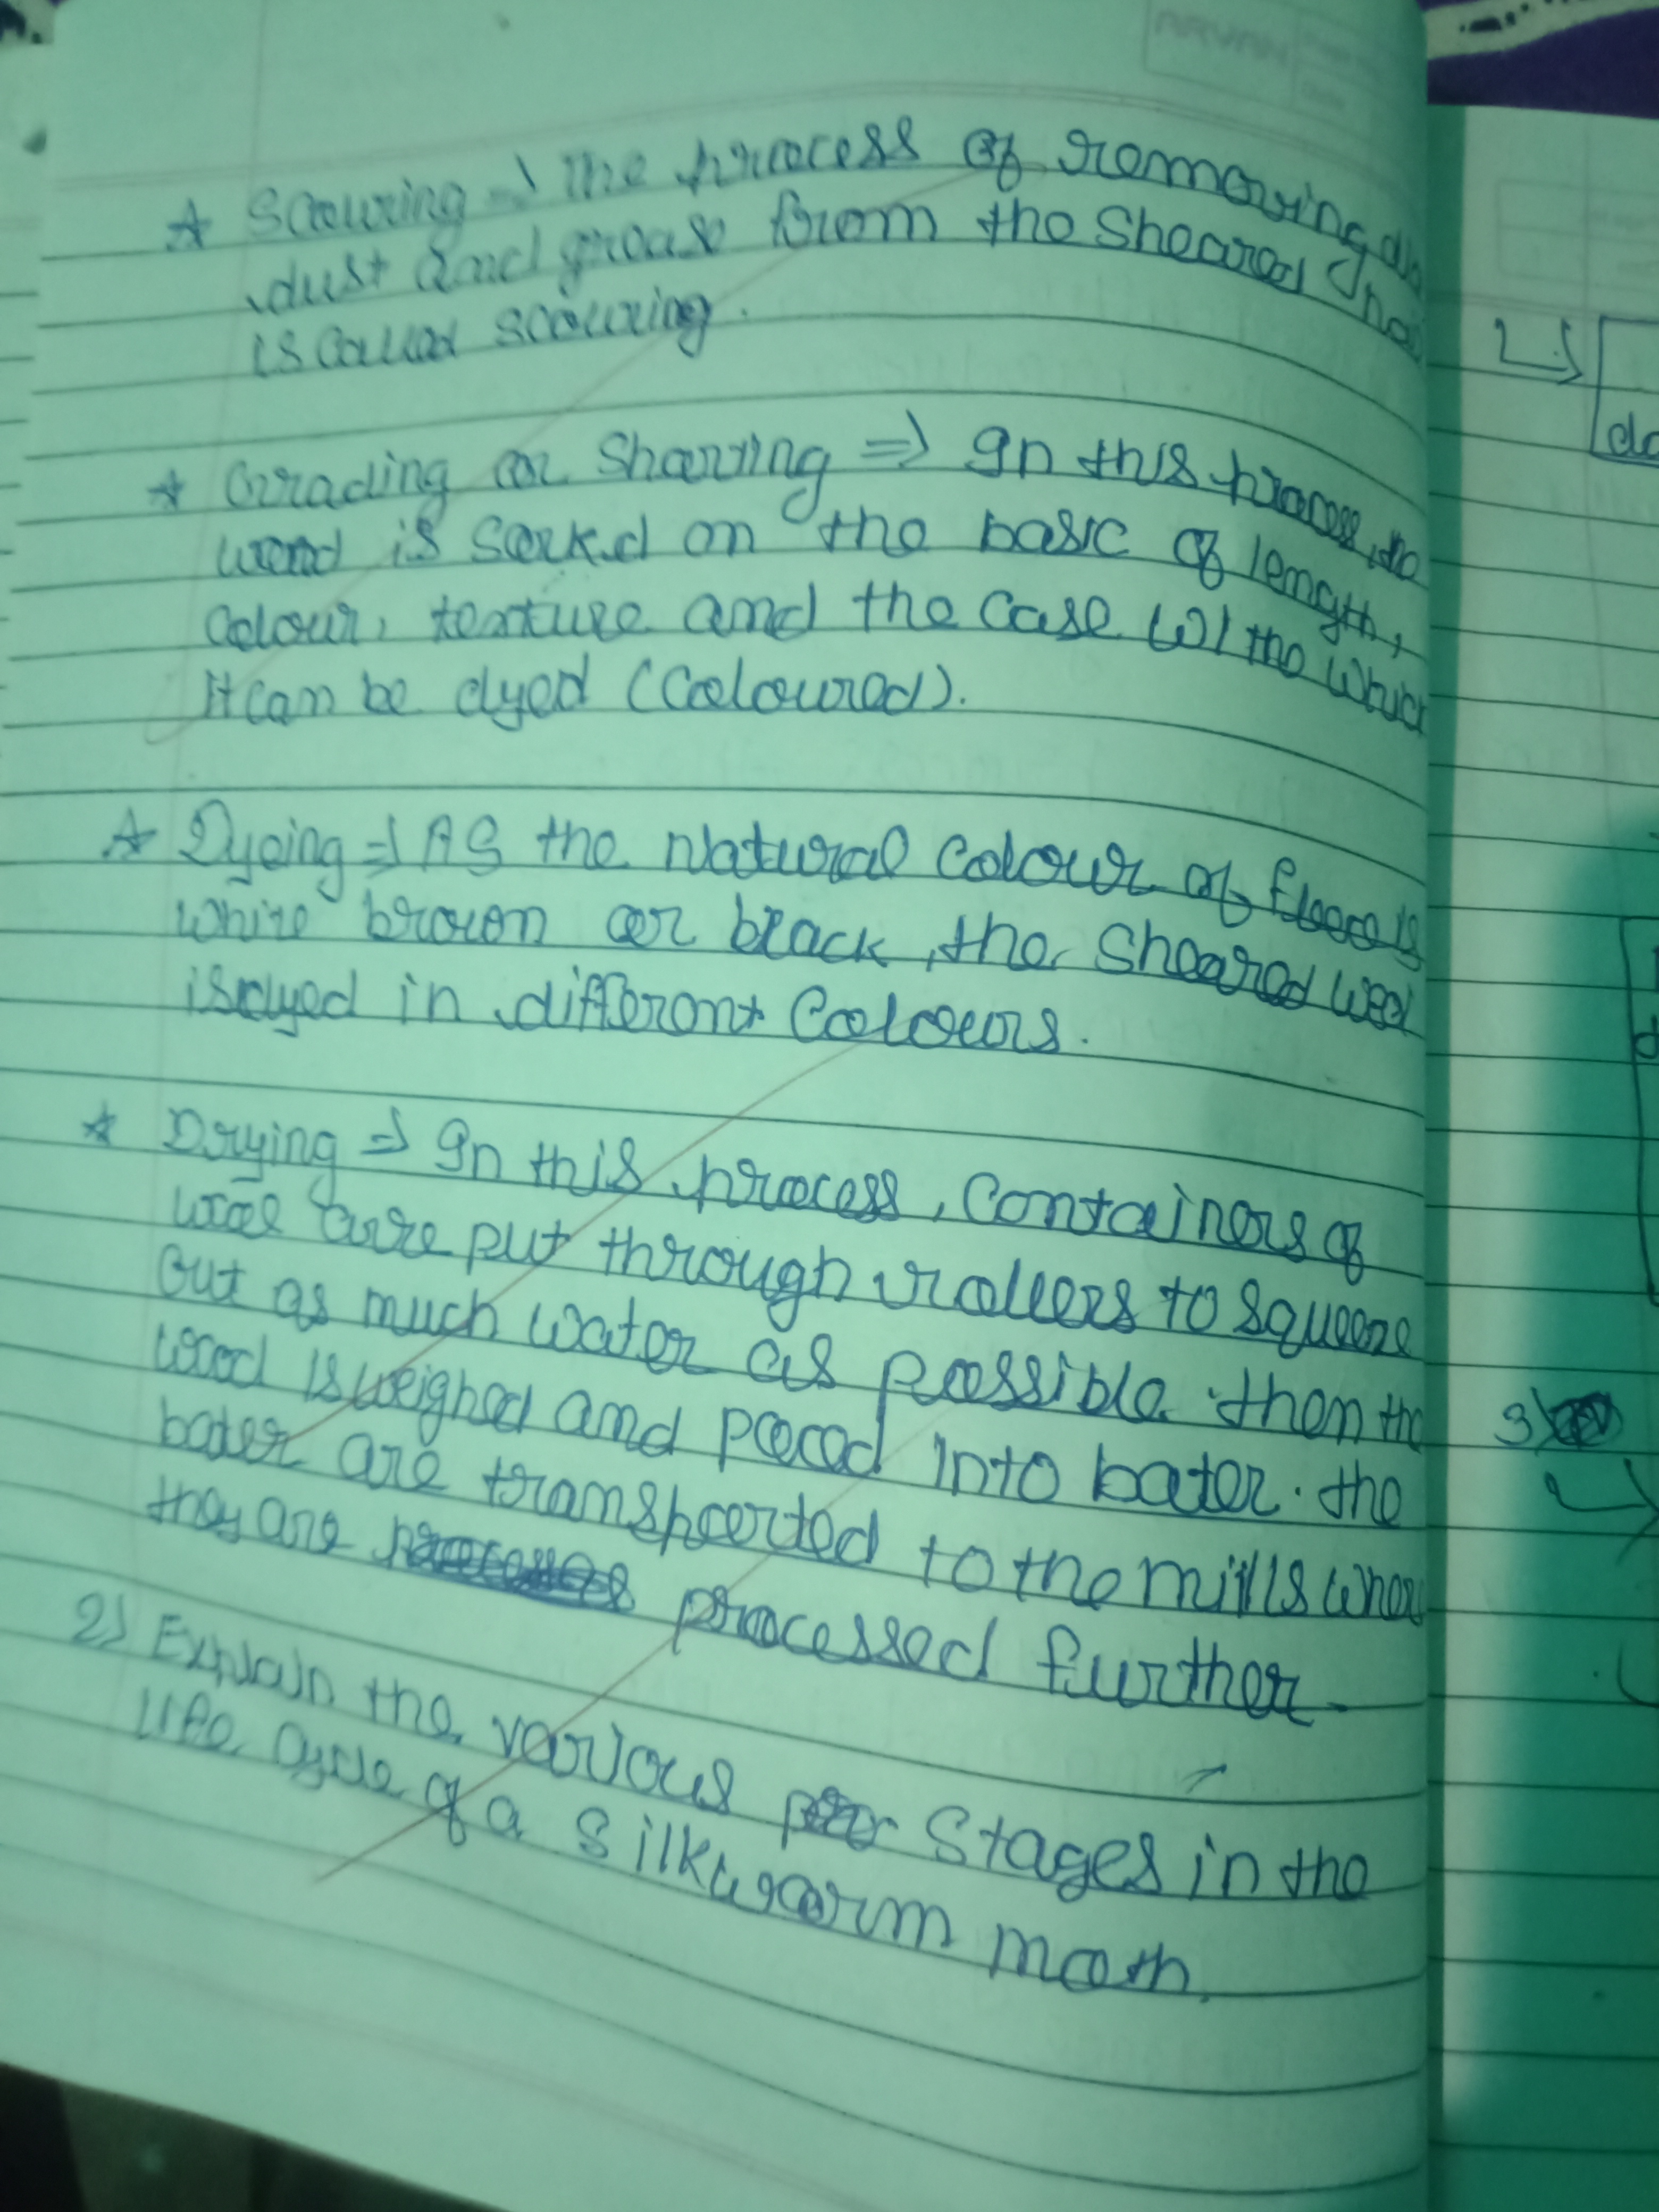 ARVAN
* Scouring => The process of removing
dust and grease from the Sheared
is called scouring.
* Grading or Sharting => In this process, the
wood is sorked on the basic of length,
colour, texture and the case w/ the which
It can be dyed (coloured).
* Dyeing => AS the Natural colour of fleece is
white brown or black, the sheared wool
is dyed in different Colours.
* Drying => In this process, Containers of
wool are put through rollers to squeeze
out as much water as possible. then the
wood is weighed and paced into bater. the
bater are transported to the mills where
they are processed further.
2) Explain the various Stages in the
life cycle of a silkworm moth.
2
3)